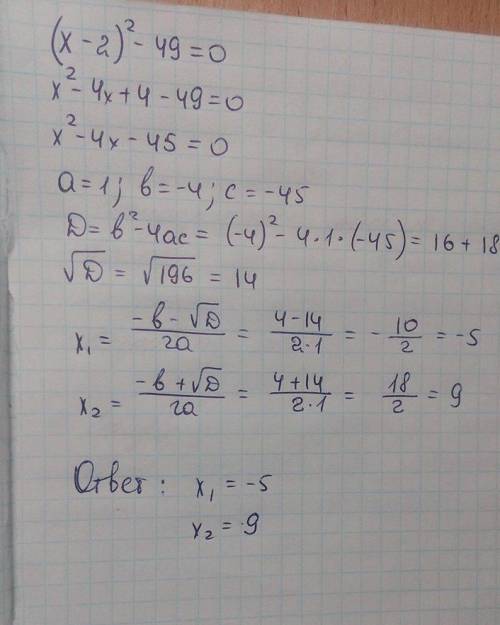 (x - 2)² - 49 = 0
x² - 4x + 4 - 49 = 0
x² - 4x - 45 = 0
a = 1; b = -4; c = -45
D = b² - 4ac = (-4)² - 4·1·(-45) = 16 + 18
√D = √196 = 14
x₁ = (-b - √D)/(2a) = (4 - 14)/(2·1) = -10/2 = -5
x₂ = (-b + √D)/(2a) = (4 + 14)/(2·1) = 18/2 = 9
Ответ: x₁ = -5
x₂ = 9